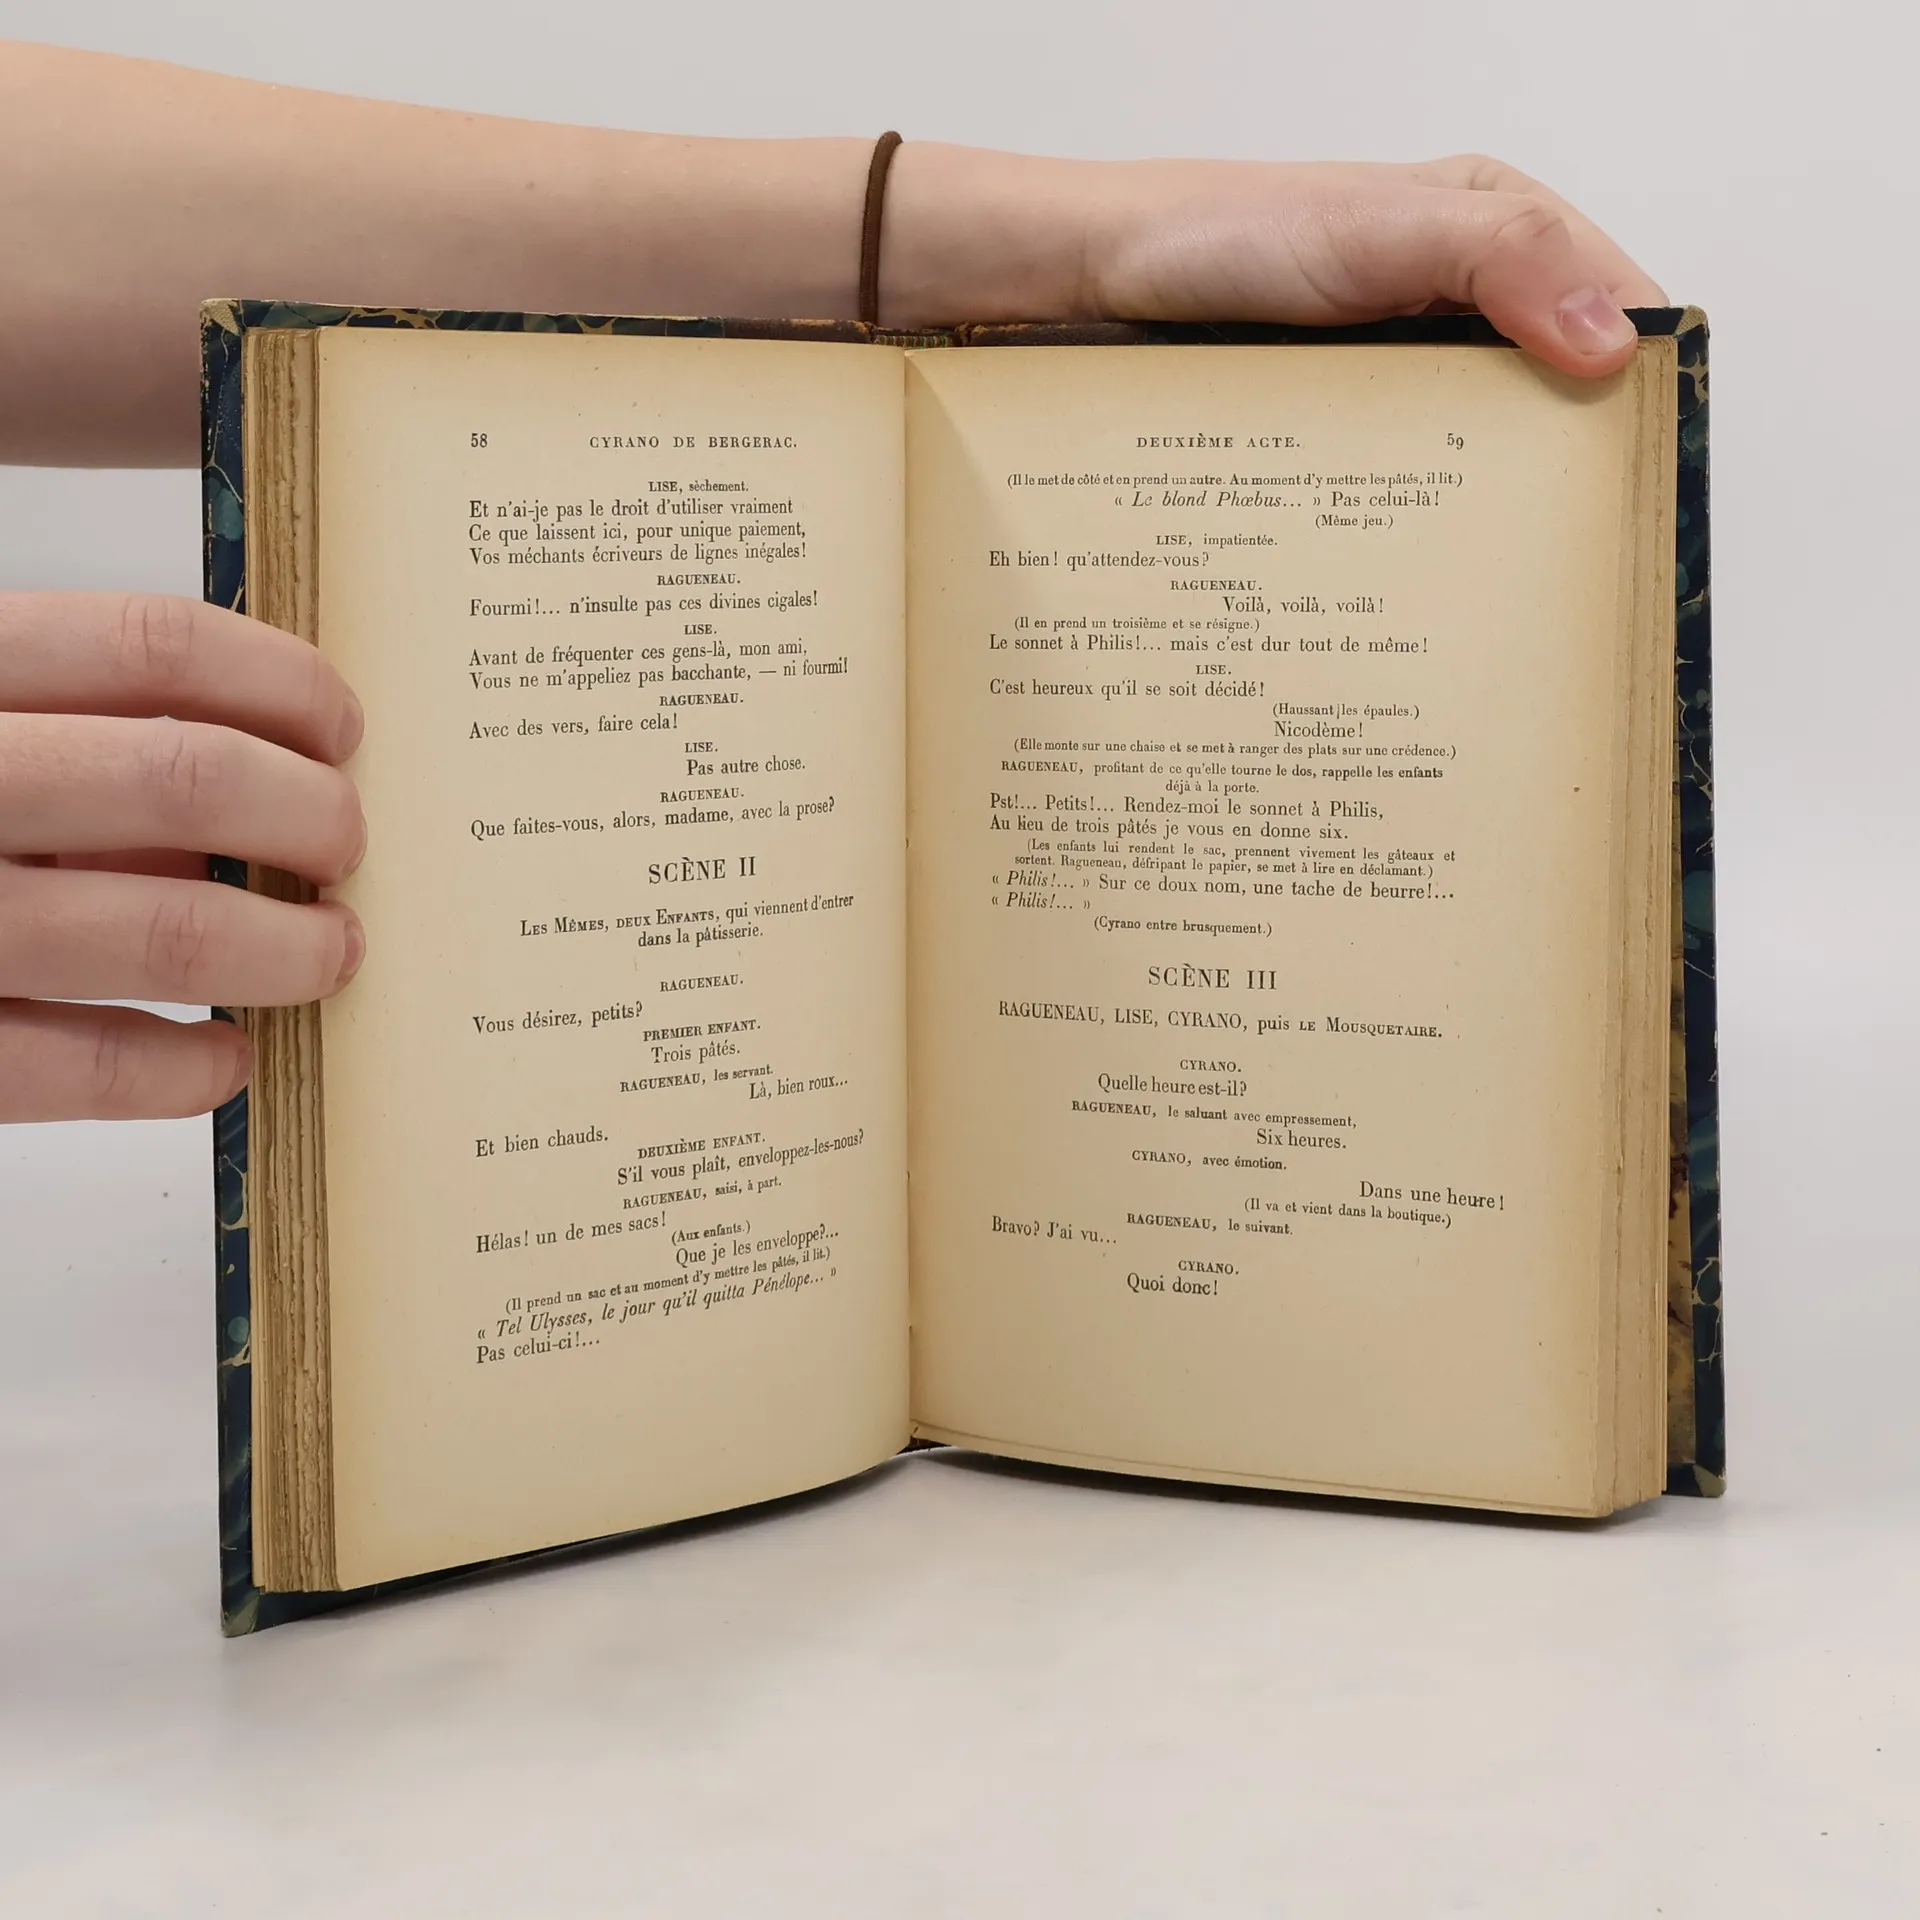 58 CYRANO DE BERGERAC.
LISE, sèchement.
Et n'ai-je pas le droit d'utiliser vraiment
Ce que laissent ici, pour unique paiement,
Vos méchants écriveurs de lignes inégales!
RAGUENEAU.
Fourmi!... n'insulte pas ces divines cigales!
LISE.
Avant de fréquenter ces gens-là, mon ami,
Vous ne m'appeliez pas bacchante, — ni fourmi!
RAGUENEAU.
Avec des vers, faire cela!
LISE.
Pas autre chose.
RAGUENEAU.
Que faites-vous, alors, madame, avec la prose?
SCÈNE II
LES MÊMES, DEUX ENFANTS, qui viennent d'entrer
dans la pâtisserie.
RAGUENEAU.
Vous désirez, petits?
PREMIER ENFANT.
Trois pâtés.
RAGUENEAU, les servant.
Là, bien roux...
Et bien chauds.
DEUXIÈME ENFANT.
S'il vous plaît, enveloppez-les-nous?
RAGUENEAU, saisi, à part.
Hélas! un de mes sacs!
(Aux enfants.)
Que je les enveloppe?...
(Il prend un sac et au moment d'y mettre les pâtés, il lit.)
« Tel Ulysses, le jour qu'il quitta Pénélope... »
Pas celui-ci!...
DEUXIÈME ACTE. 59
(Il le met de côté et en prend un autre. Au moment d'y mettre les pâtés, il lit.)
« Le blond Phœbus... » Pas celui-là!
(Même jeu.)
LISE, impatientée.
Eh bien! qu'attendez-vous?
RAGUENEAU.
Voilà, voilà, voilà!
(Il en prend un troisième et se résigne.)
Le sonnet à Philis!... mais c'est dur tout de même!
LISE.
C'est heureux qu'il se soit décidé!
(Haussant les épaules.)
Nicodème!
(Elle monte sur une chaise et se met à ranger des plats sur une crédence.)
RAGUENEAU, profitant de ce qu'elle tourne le dos, rappelle les enfants
déjà à la porte.
Pst!... Petits!... Rendez-moi le sonnet à Philis,
Au lieu de trois pâtés je vous en donne six.
(Les enfants lui rendent le sac, prennent vivement les gâteaux et
sortent. Ragueneau, défripant le papier, se met à lire en déclamant.)
« Philis!... » Sur ce doux nom, une tache de beurre!...
« Philis!... »
(Cyrano entre brusquement.)
SCÈNE III
RAGUENEAU, LISE, CYRANO, puis LE MOUSQUETAIRE.
CYRANO.
Quelle heure est-il?
RAGUENEAU, le saluant avec empressement,
Six heures.
CYRANO, avec émotion.
Dans une heure!
(Il va et vient dans la boutique.)
RAGUENEAU, le suivant.
Bravo? J'ai vu...
CYRANO.
Quoi donc!